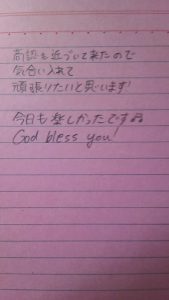 高認も近づいて来たので
気合い入れて
頑張りたいと思います!
今日も楽しかったです♫
God bless you!